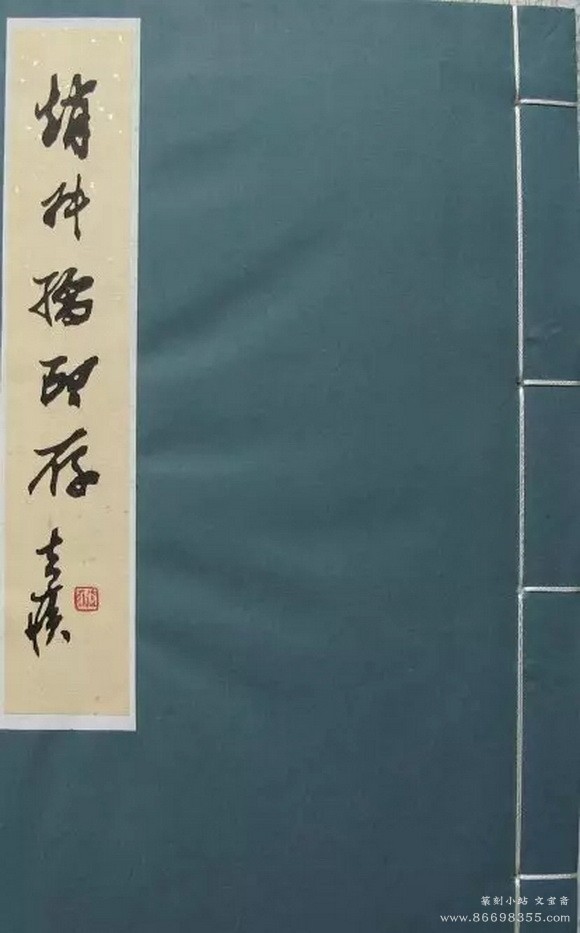 趙叔孺印存
去疾
篆刻小站 文宝斋
www.86698355.com